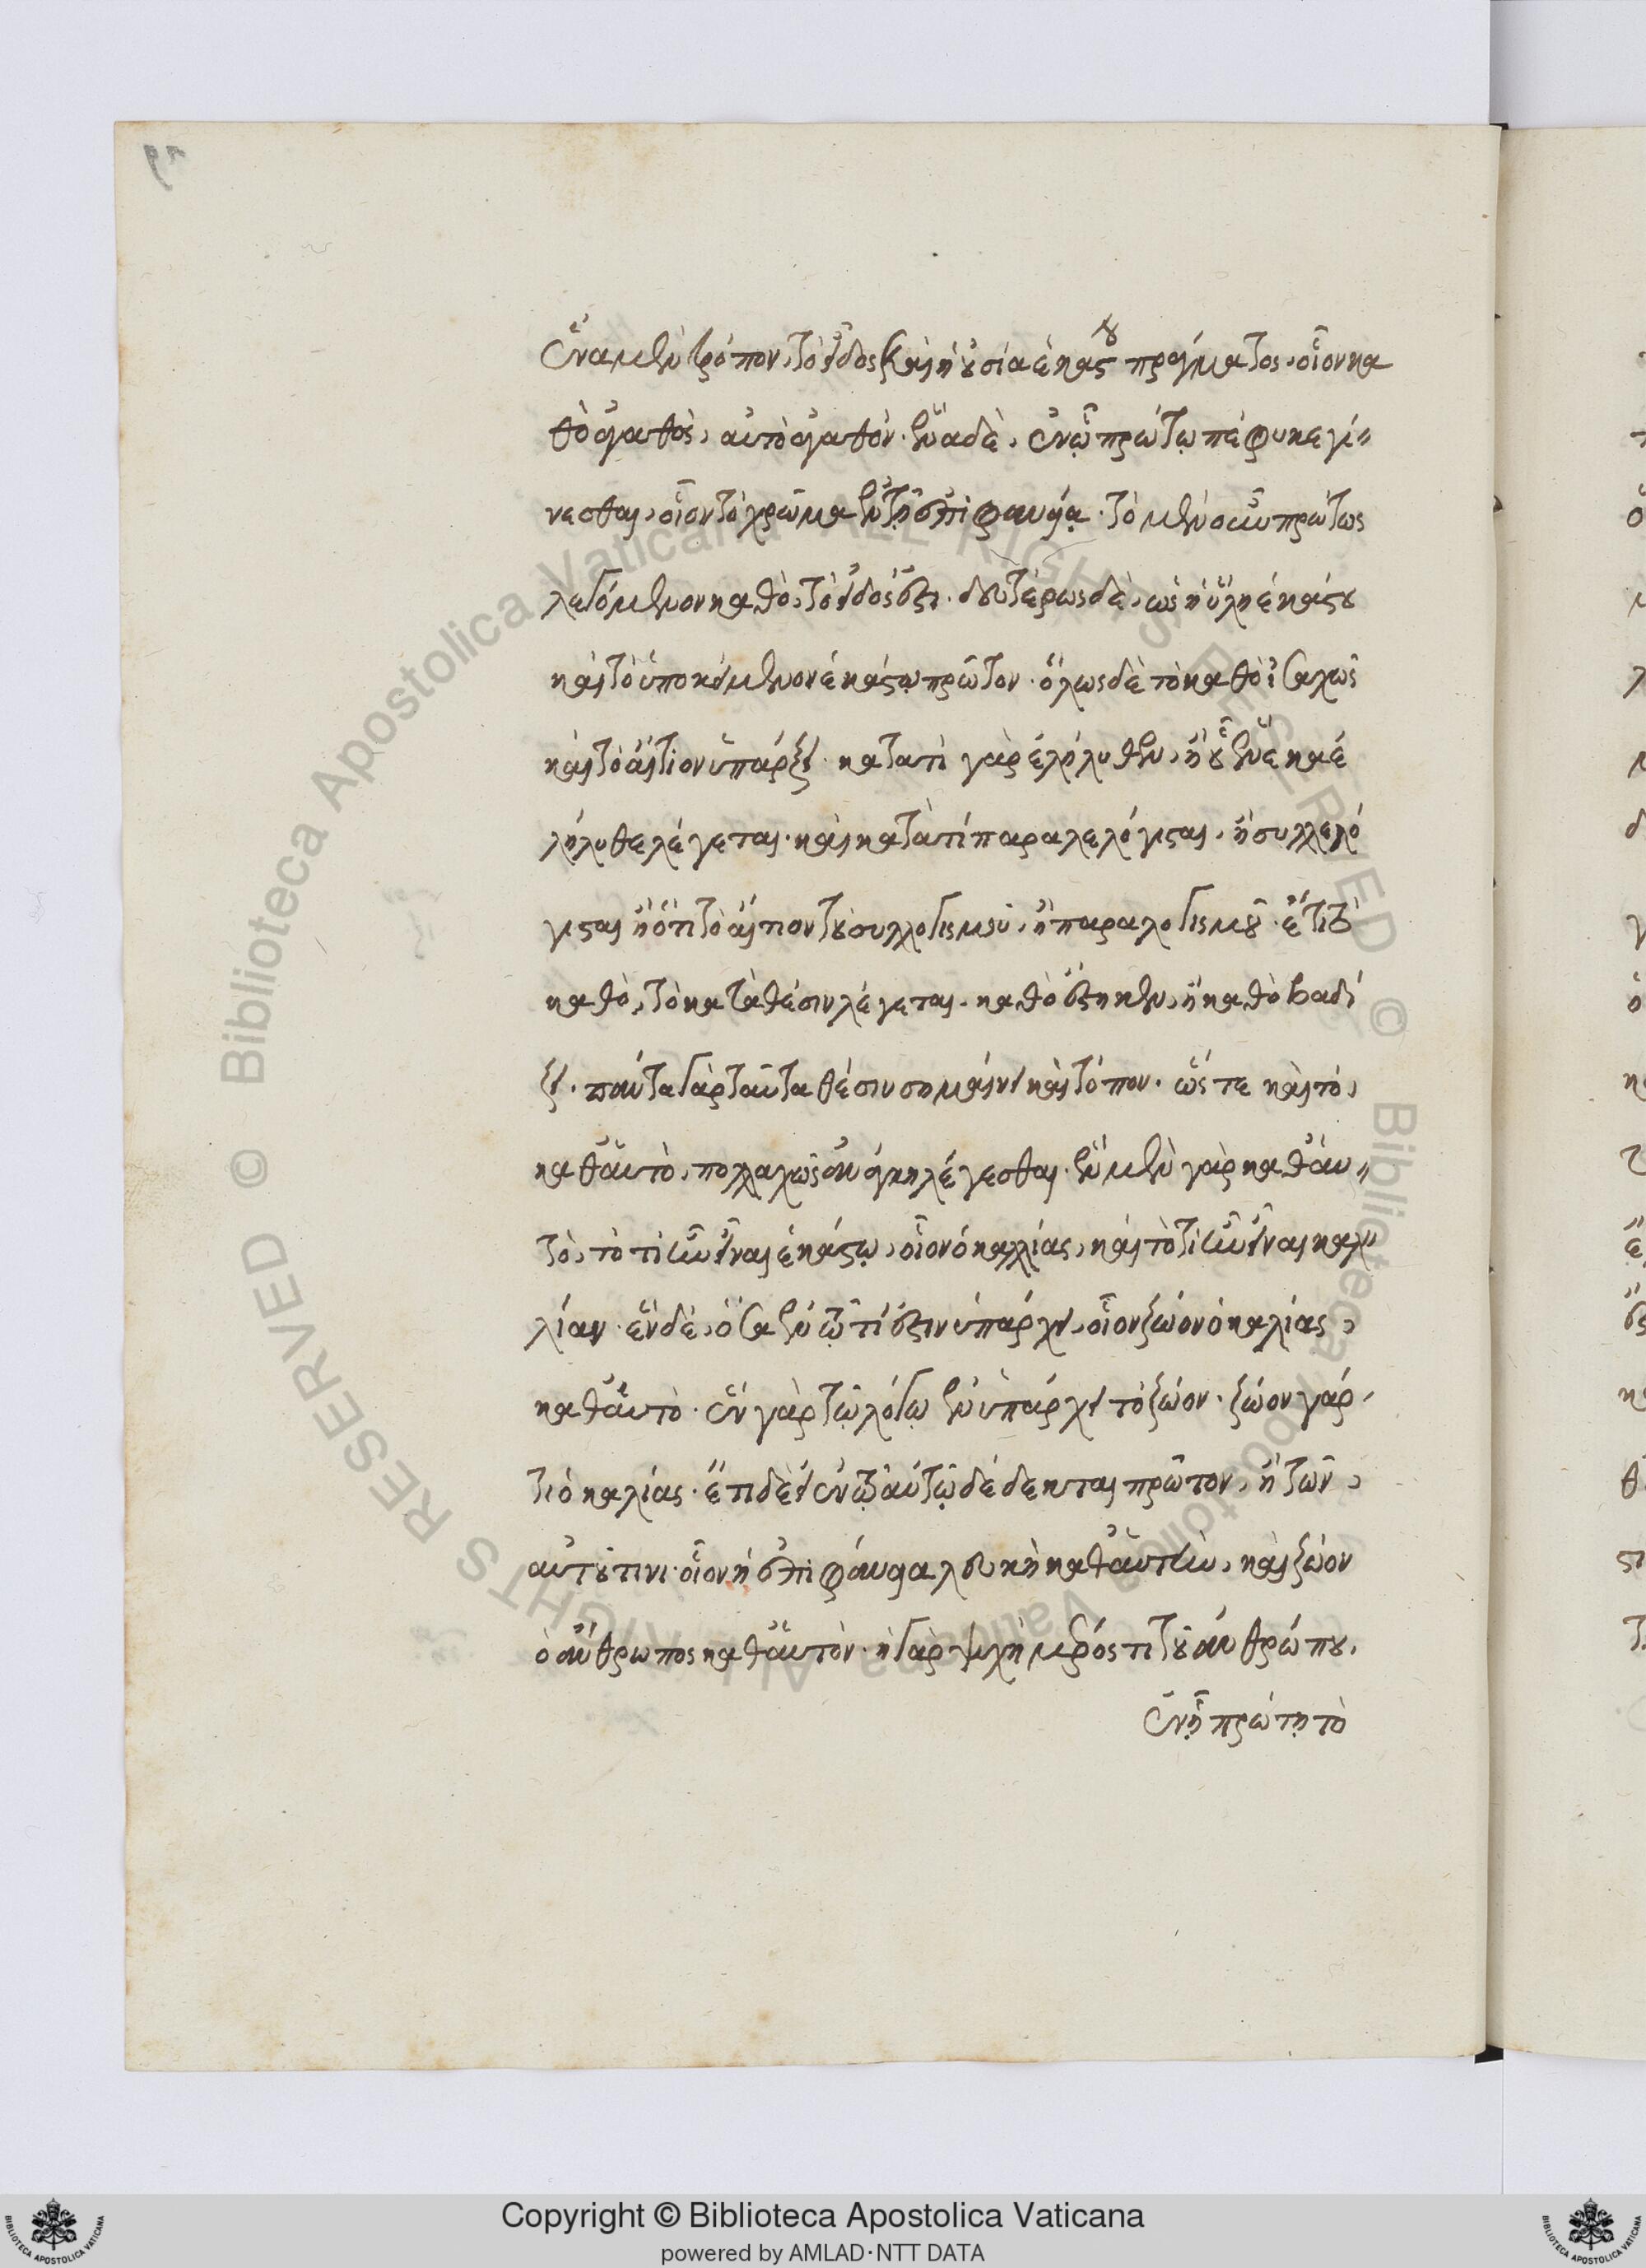 ἕνα μὲν τρόπον, τὸ εἶδος καὶ ἡ οὐσία ἑκάστου πράγματος. οἷον κα
θὸ ἀγαθὸς, αὐτὸ ἀγαθόν. ἕνα δὲ, ἐν ᾧ πρώτῳ πέφυκε γί〃
νεσθαι, οἷον τὸ χρῶμα ἐν τῇ ἐπιφανείᾳ. τὸ μὲν οὖν πρώτως
λεγόμενον καθὸ, τὸ εἶδός ἐστι. δευτέρως δὲ, ὡς ἡ ὕλη ἑκάστου
καὶ τὸ ὑποκείμενον ἑκάστῳ πρῶτον. ὅλως δὲ τὸ καθὸ ἰσαχῶς
καὶ τὸ αἴτιον ὑπάρξει. κατατὶ γὰρ ἐλήλυθεν, ἢ οὗ ἕνεκα ἐ
λήλυθε λέγεται. καὶ κατατί παραλελόγισται, ἢ συλλελό
γισται ἢ ὅτι τὸ αἴτιον τοῦ συλλογισμοῦ, ἢ παραλογισμοῦ. ἔτι τὸ
καθὸ, τὸ κατὰ θέσιν λέγεται. καθὸ ἕστηκεν, ἢ καθὸ βαδί
ζει. πάντα γὰρ ταῦτα θέσιν σημαίνει καὶ τόπον. ὥστε καὶ τὸ,
καθ' αὑτὸ, πολλαχῶς ἀνάγκη λέγεσθαι. ἓν μὲν γὰρ καθ' αὑ〃
τὸ, τὸ τὶ ἦν εἶναι ἑκάστῳ, οἷον ὁ καλλίας, καὶ τὸ τὶ ἦν εἶναι καλ〃
λίαν. ἓν δὲ, ὅσα ἐν ᾧ τί ἐστιν ὑπάρχει, οἷον ζῶον ὁ καλίας,
καθ' αὑτὸ. ἐν γὰρ τῷ λόγῳ ἐνυπάρχει τὸ ζῶον. ζῶον γάρ
τι ὁ καλίας. ἔτι δὲ εἰ ἐν ᾧ αὐτῷ δέδεκται πρῶτον, ἢ τῶν,
αὐτοῦ τινι. οἷον ἡ ἐπιφάνεια λευκὴ καθ' αὑτὴν, καὶ ζῶον
ὁ ἄνθρωπος καθ' αὑτὸν. ἡ γὰρ ψυχὴ μέρός τι τοῦ ἀνθρώπου,
ἐν ᾗ πρώτῃ τὸ
Copyright © Biblioteca Apostolica Vaticana
powered by AMLAD·NTT DATA